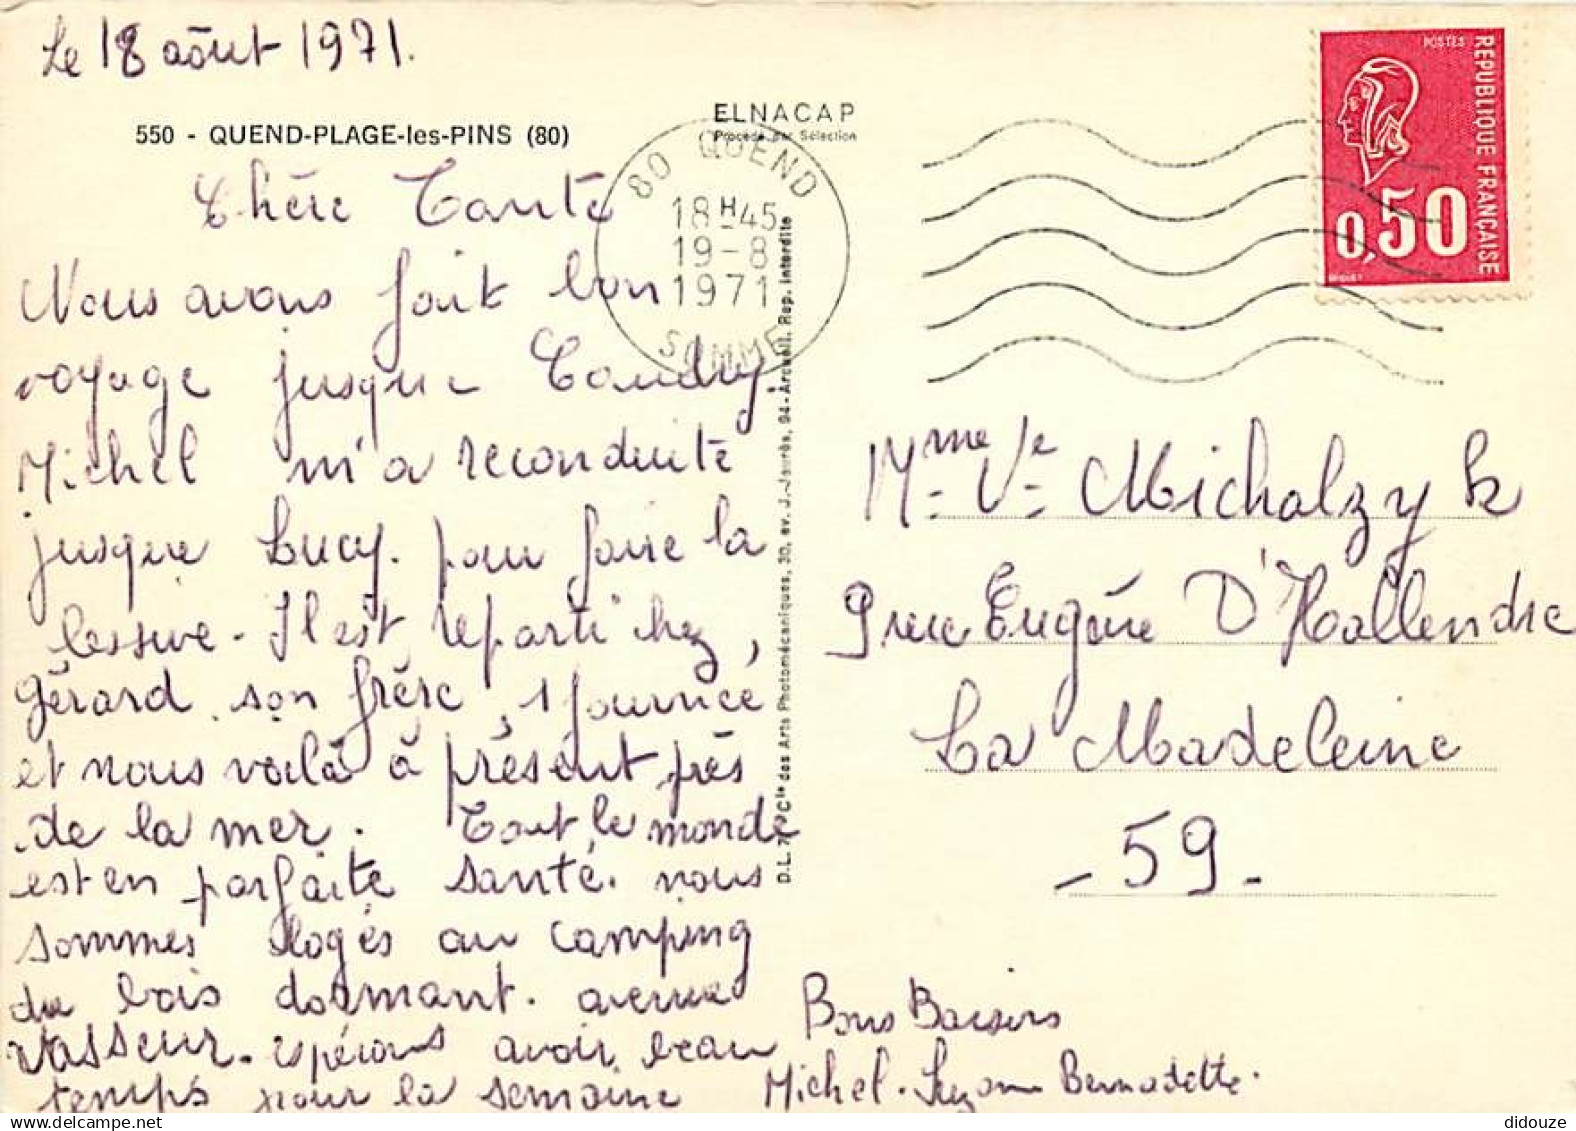 Le 18 août 1971.
550 - QUEND-PLAGE-les-PINS (80)
ELNACAP
Procédé par Sélection
80 QUEND
18H45
19-8
1971
SOMME
POSTES
REPUBLIQUE FRANÇAISE
0,50
Chère Tante
Nous avons fait bon
voyage jusque Caudry.
Michel m'a reconduite
jusque Lucy. pour faire la
lessive - Il est reparti chez,
Gérard son frère, 1 journée
et nous voilà à présent près
de la mer. Tout le monde
est en parfaite santé. nous
sommes logés au camping
du bois dormant. avenue
Vasseur. espérons avoir beau
temps pour la semaine
D.L. Cie des Arts Photomécaniques, 30, av. J.-Jaurès, 94-Arcueil. Rep. interdite
Mme Ve Michalzyk
9 rue Eugène D'Hallendre
La Madeleine
- 59 -
Bons Baisers
Michel. Suzanne Bernadette.
didouze